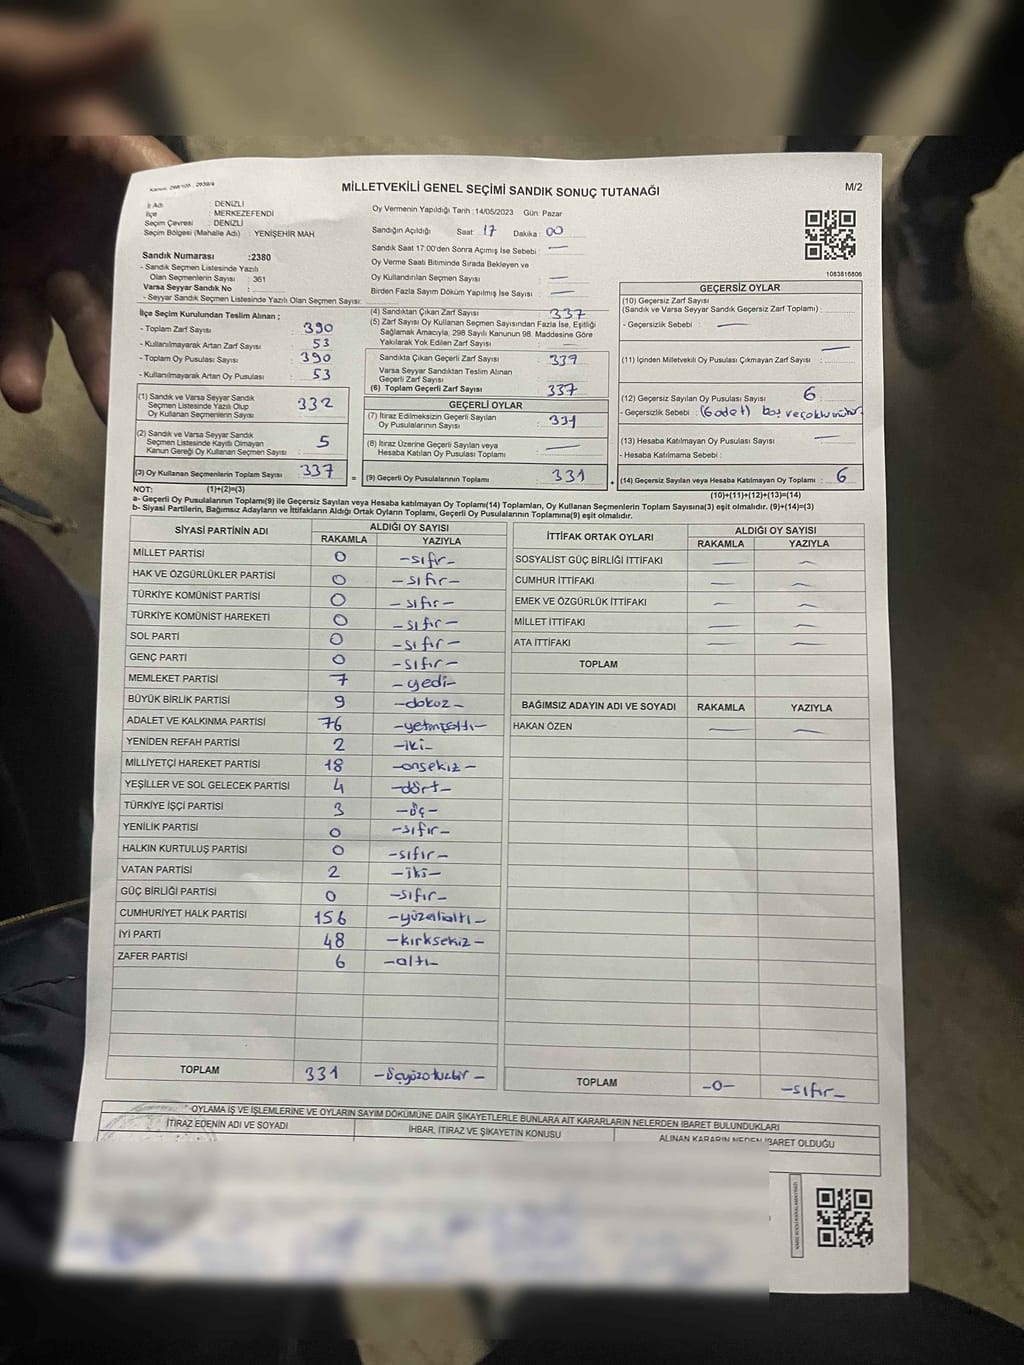 MİLLETVEKİLİ GENEL SEÇİMİ SANDIK SONUÇ TUTANAĞI
M/2
İl Adı : DENİZLİ
İlçe : MERKEZEFENDİ
Seçim Çevresi : DENİZLİ
Seçim Bölgesi (Mahalle Adı) : YENİŞEHİR MAH.
Oy Vermenin Yapıldığı Tarih : 14/05/2023 Gün: Pazar
Sandığın Açıldığı Saat: 17 Dakika: 00
Sandık Saat 17:00'den Sonra Açımış İse Sebebi : —
Oy Verme Saati Bitiminde Sırada Bekleyen ve
Oy Kullandırılan Seçmen Sayısı : —
Birden Fazla Sayım Döküm Yapılmış İse Sayısı : —
1083816806
Sandık Numarası :2380
- Sandık Seçmen Listesinde Yazılı
Olan Seçmenlerin Sayısı : 361
Varsa Seyyar Sandık No :
- Seyyar Sandık Seçmen Listesinde Yazılı Olan Seçmen Sayısı:
İlçe Seçim Kurulundan Teslim Alınan ;
- Toplam Zarf Sayısı : 390
- Kullanılmayarak Artan Zarf Sayısı : 53
- Toplam Oy Pusulası Sayısı : 390
- Kullanılmayarak Artan Oy Pusulası : 53
(1) Sandık ve Varsa Seyyar Sandık
Seçmen Listesinde Yazılı Olup
Oy Kullanan Seçmenlerin Sayısı 332
(2) Sandık ve Varsa Seyyar Sandık
Seçmen Listesinde Kayıtlı Olmayan
Kanun Gereği Oy Kullanan Seçmen Sayısı : 5
(3) Oy Kullanan Seçmenlerin Toplam Sayısı : 337
(1)+(2)=(3)
(4) Sandıktan Çıkan Zarf Sayısı : 337
(5) Zarf Sayısı Oy Kullanan Seçmen Sayısından Fazla İse, Eşitliği
Sağlamak Amacıyla, 298 Sayılı Kanunun 98. Maddesine Göre
Yakılarak Yok Edilen Zarf Sayısı :
Sandıkta Çıkan Geçerli Zarf Sayısı : 337
Varsa Seyyar Sandıktan Teslim Alınan
Geçerli Zarf Sayısı :
(6) Toplam Geçerli Zarf Sayısı : 337
GEÇERLİ OYLAR
(7) İtiraz Edilmeksizin Geçerli Sayılan
Oy Pusulalarının Sayısı : 331
(8) İtiraz Üzerine Geçerli Sayılan veya
Hesaba Katılan Oy Pusulası Toplamı : —
= (9) Geçerli Oy Pusulalarının Toplamı : 331
GEÇERSİZ OYLAR
(10) Geçersiz Zarf Sayısı
(Sandık ve Varsa Seyyar Sandık Geçersiz Zarf Toplamı) :
- Geçersizlik Sebebi : —
(11) İçinden Milletvekili Oy Pusulası Çıkmayan Zarf Sayısı : —
(12) Geçersiz Sayılan Oy Pusulası Sayısı : 6
- Geçersizlik Sebebi : (6 adet)
(13) Hesaba Katılmayan Oy Pusulası Sayısı : —
- Hesaba Katılmama Sebebi :
+ (14) Geçersiz Sayılan veya Hesaba Katılmayan Oy Toplamı : 6
(10)+(11)+(12)+(13)=(14)
NOT:
a- Geçerli Oy Pusulalarının Toplamı(9) ile Geçersiz Sayılan veya Hesaba katılmayan Oy Toplamı(14) Toplamları, Oy Kullanan Seçmenlerin Toplam Sayısına(3) eşit olmalıdır. (9)+(14)=(3)
b- Siyasi Partilerin, Bağımsız Adayların ve İttifakların Aldığı Ortak Oyların Toplamı, Geçerli Oy Pusulalarının Toplamına(9) eşit olmalıdır.
SİYASİ PARTİNİN ADI ALDIĞI OY SAYISI
RAKAMLA YAZIYLA
MİLLET PARTİSİ 0 -sıfır-
HAK VE ÖZGÜRLÜKLER PARTİSİ 0 -sıfır-
TÜRKİYE KOMÜNİST PARTİSİ 0 -sıfır-
TÜRKİYE KOMÜNİST HAREKETİ 0 -sıfır-
SOL PARTİ 0 -sıfır-
GENÇ PARTİ 0 -sıfır-
MEMLEKET PARTİSİ 7 -yedi-
BÜYÜK BİRLİK PARTİSİ 9 -dokuz-
ADALET VE KALKINMA PARTİSİ 76 -yetmişaltı-
YENİDEN REFAH PARTİSİ 2 -iki-
MİLLİYETÇİ HAREKET PARTİSİ 18 -onsekiz-
YEŞİLLER VE SOL GELECEK PARTİSİ 4 -dört-
TÜRKİYE İŞÇİ PARTİSİ 3 -üç-
YENİLİK PARTİSİ 0 -sıfır-
HALKIN KURTULUŞ PARTİSİ 0 -sıfır-
VATAN PARTİSİ 2 -iki-
GÜÇ BİRLİĞİ PARTİSİ 0 -sıfır-
CUMHURİYET HALK PARTİSİ 156 -yüzellialtı-
İYİ PARTİ 48 -kırksekiz-
ZAFER PARTİSİ 6 -altı-
TOPLAM 331 -üçyüzotuzbir-
İTTİFAK ORTAK OYLARI ALDIĞI OY SAYISI
RAKAMLA YAZIYLA
SOSYALİST GÜÇ BİRLİĞİ İTTİFAKI — —
CUMHUR İTTİFAKI — —
EMEK VE ÖZGÜRLÜK İTTİFAKI — —
MİLLET İTTİFAKI — —
ATA İTTİFAKI — —
TOPLAM
BAĞIMSIZ ADAYIN ADI VE SOYADI RAKAMLA YAZIYLA
HAKAN ÖZEN — —
TOPLAM -0- -sıfır-
OYLAMA İŞ VE İŞLEMLERİNE VE OYLARIN SAYIM DÖKÜMÜNE DAİR ŞİKAYETLERLE BUNLARA AİT KARARLARIN NELERDEN İBARET BULUNDUKLARI
İTİRAZ EDENİN ADI VE SOYADI İHBAR, İTİRAZ VE ŞİKAYETİN KONUSU ALINAN KARARIN NEDEN İBARET OLDUĞU